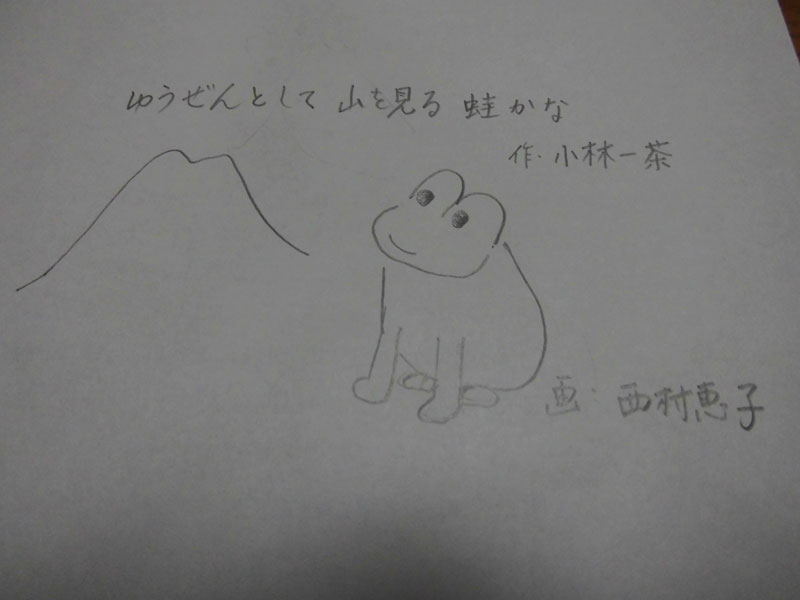 ゆうぜんとして 山を見る 蛙かな
作・小林一茶
画:西村恵子